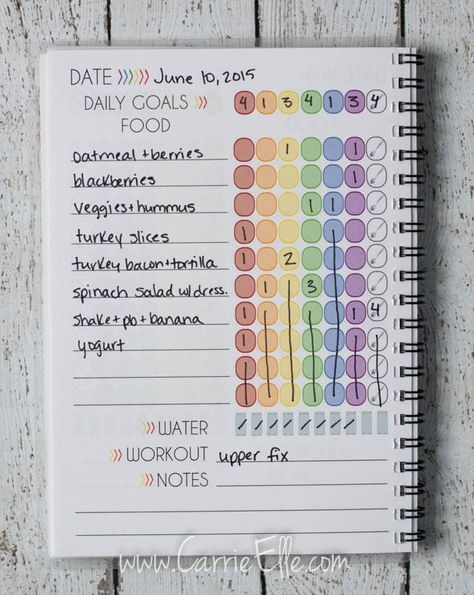 DATE >>>>>> June 10, 2015
DAILY GOALS >>> 4 1 3 4 1 3 4
FOOD
oatmeal + berries 1 1
blackberries 1
veggies + hummus 1 1
turkey slices 1
turkey bacon + tortilla 1 2
spinach salad w/ dress. 1 3
shake + pb + banana 1 1 4
yogurt 1
>>> WATER / / / / / / / /
>>> WORKOUT upper fix
>>> NOTES
www.CarrieElle.com